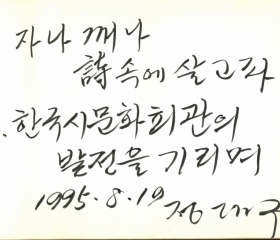 자나 깨나
詩 속에 살고파
한국시문화회관의
발전을 기리며
1995. 8. 19 정대구